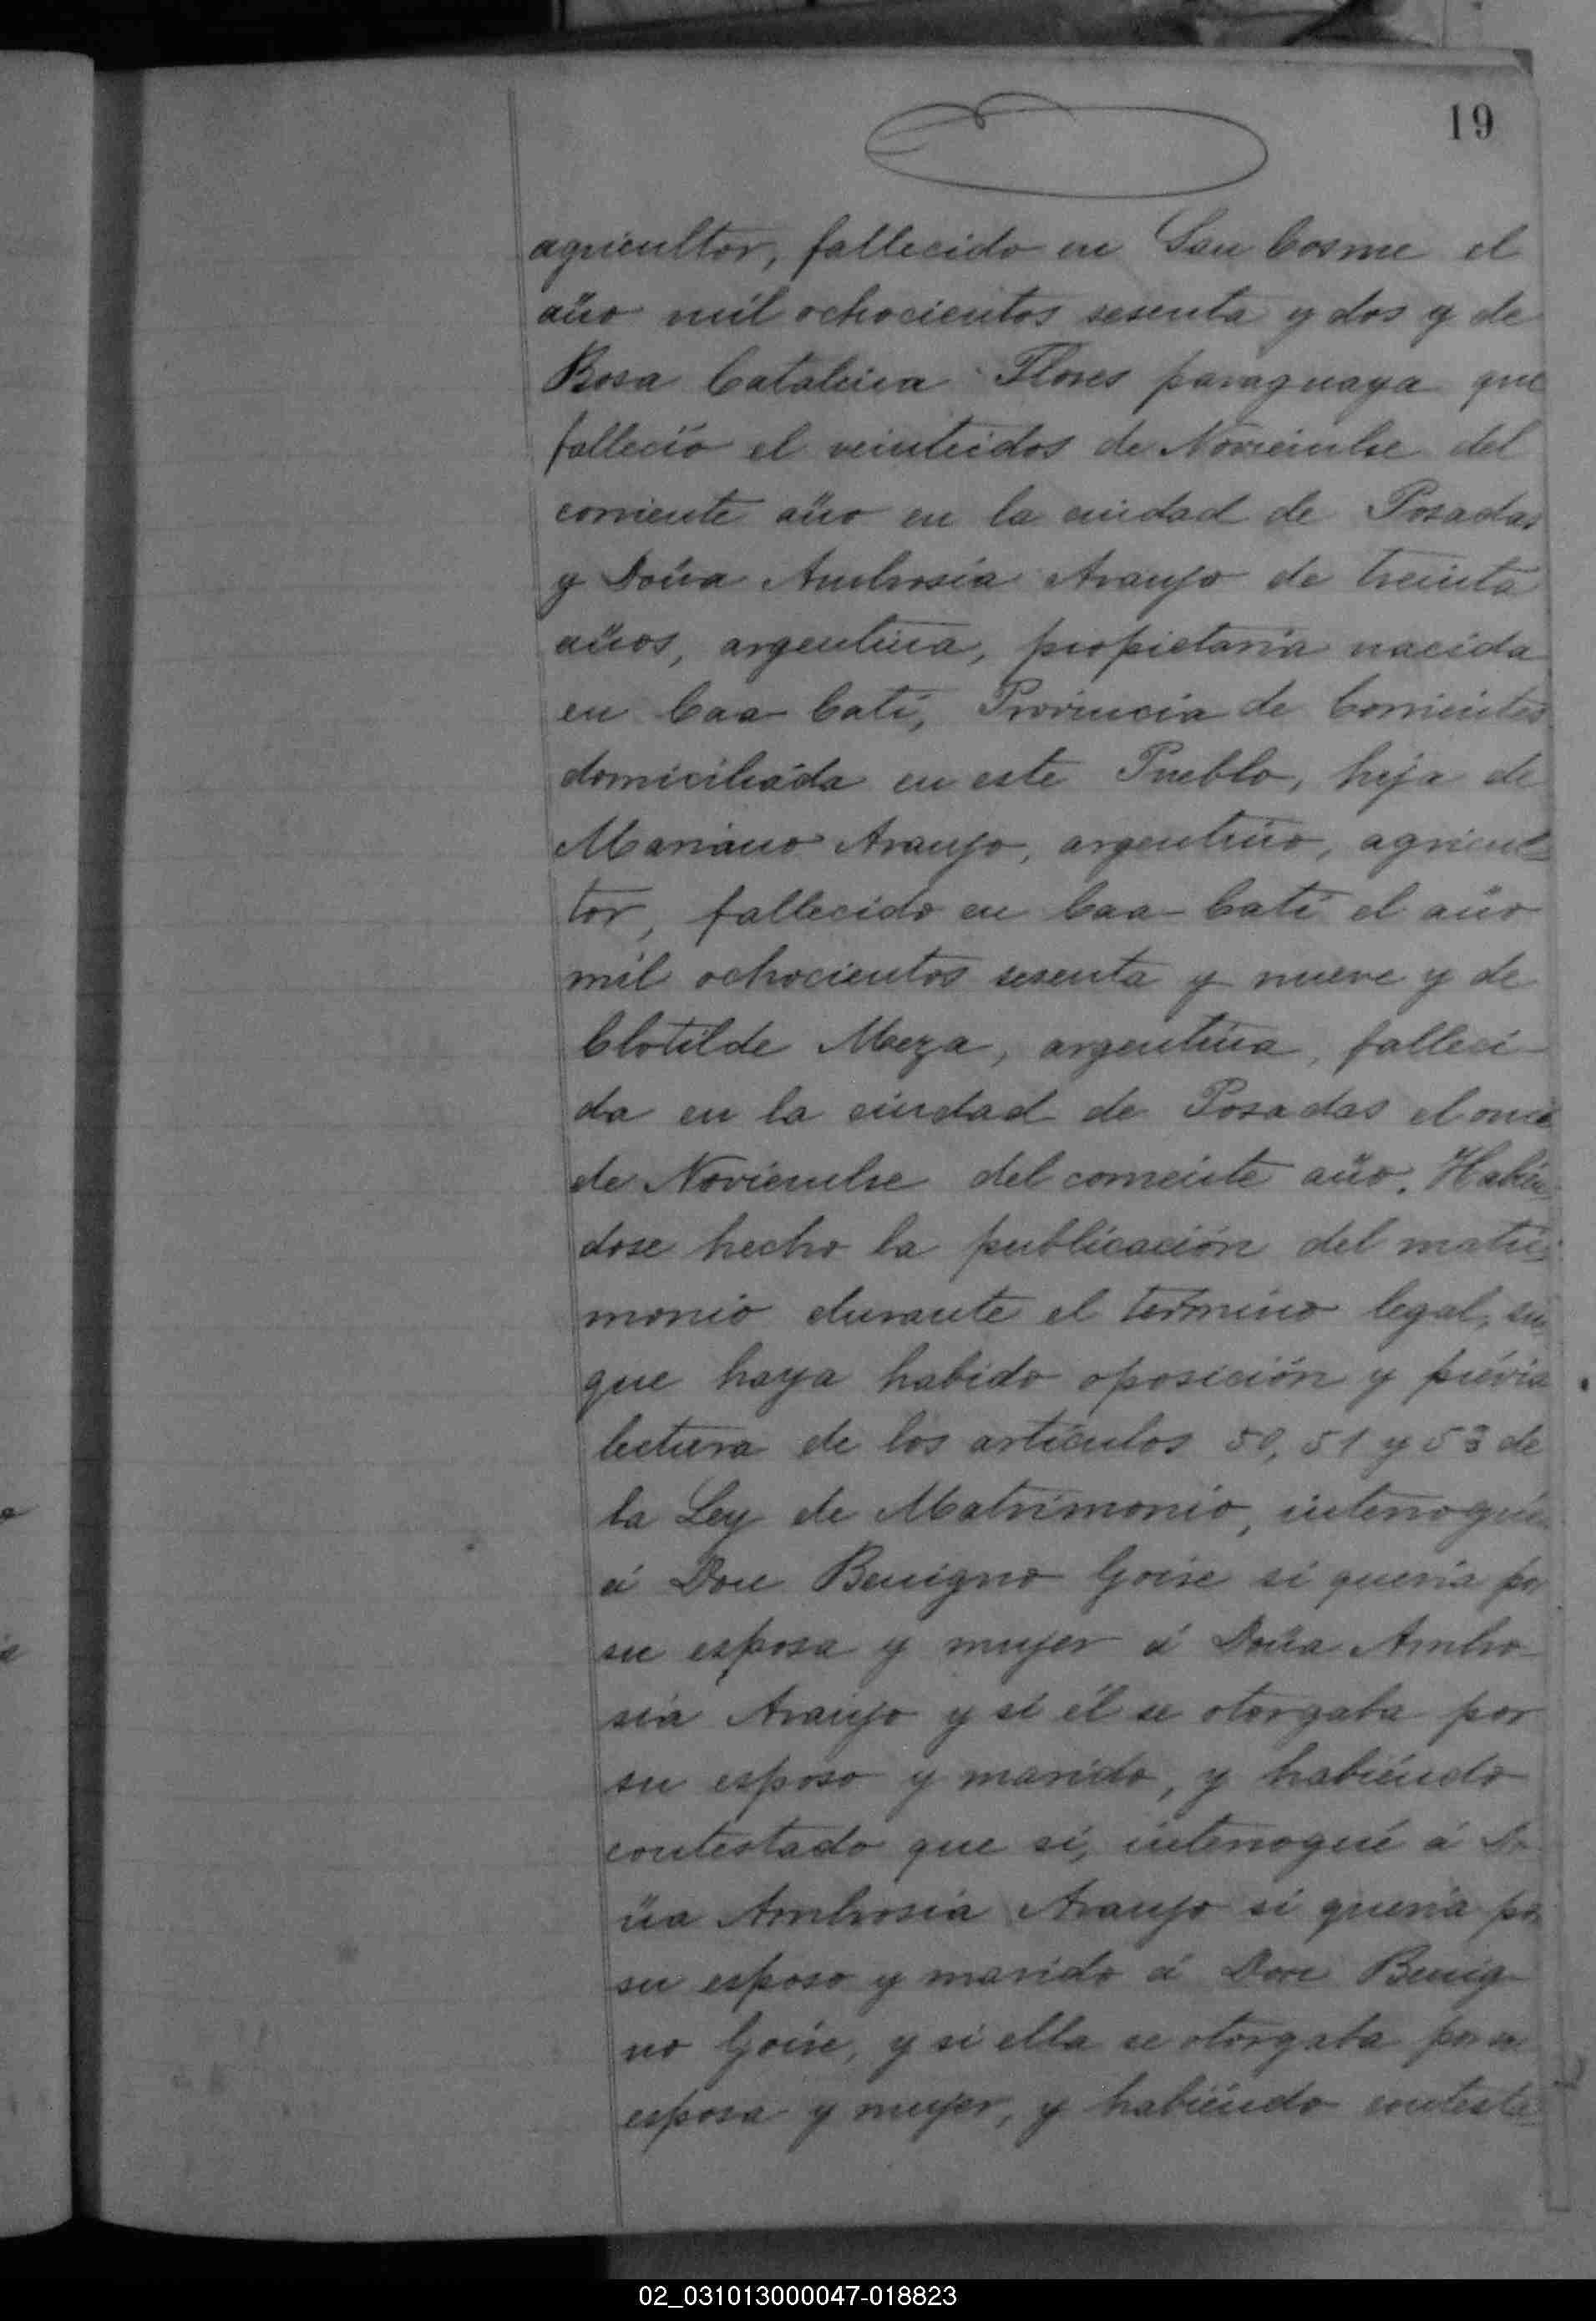 19
agricultor, fallecido en San Cosme el
año mil ochocientos sesenta y dos y de
Rosa Catalina Flores paraguaya que
falleció el veintidos de Noviembre del
corriente año en la ciudad de Posadas
y Doña Ambrosia Araujo de treinta
años, argentina, propietaria nacida
en Caa-Catí, Provincia de Corrientes
domiciliada en este Pueblo, hija de
Mariano Araujo, argentino, agricul=
tor, fallecido en Caa-Catí el año
mil ochocientos sesenta y nueve y de
Clotilde Meza, argentina, falleci-
da en la ciudad de Posadas el once
de Noviembre del corriente año. Habién=
dose hecho la publicación del matri=
monio durante el termino legal, sin
que haya habido oposición y prévia
lectura de los artículos 50, 51 y 53 de
la Ley de Matrimonio, interrogué
á Don Benigno Goire si queria por
su esposa y mujer á Doña Ambro-
sia Araujo y si él se otorgaba por
su esposo y marido, y habiendo
contestado que si, interrogué á Do-
ña Ambrosia Araujo si queria por
su esposo y marido á Don Benig-
no Goire, y si ella se otorgaba por su
esposa y mujer, y habiendo contesta=
02_031013000047-018823